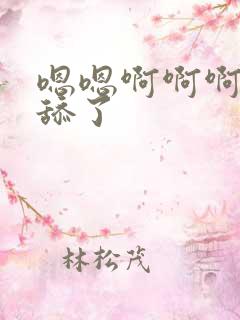 嗯嗯啊啊啊
舔了
林松茂